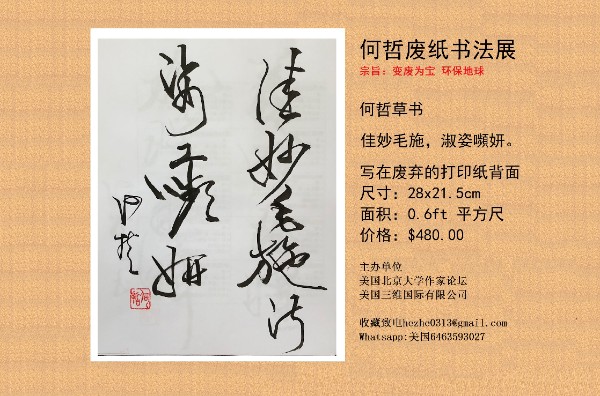 佳妙毛施淑
姿工嚬妍
何哲
何哲废纸书法展
宗旨：变废为宝 环保地球
何哲草书
佳妙毛施，淑姿嚬妍。
写在废弃的打印纸背面
尺寸：28x21.5cm
面积：0.6ft 平方尺
价格：$480.00
主办单位
美国北京大学作家论坛
美国三维国际有限公司
收藏致电hezhe0313@gmail.com
Whatsapp:美国6463593027